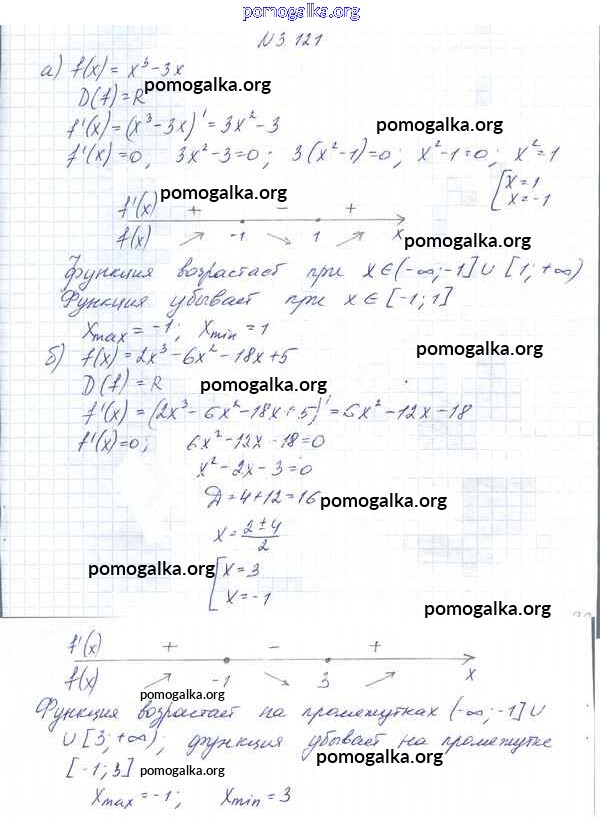 pomogalka.org
N 3.121
а) f(x) = x³ - 3x
pomogalka.org
D(f) = R
f'(x) = (x³ - 3x)' = 3x² - 3
pomogalka.org
f'(x) = 0, 3x² - 3 = 0; 3(x² - 1) = 0; x² - 1 = 0; x² = 1
[x = 1
x = -1
pomogalka.org
f'(x) + - +
f(x) ↗ -1 ↘ 1 ↗ x
pomogalka.org
Функция возрастает при x ∈ (-∞; -1] ∪ [1; +∞)
Функция убывает при x ∈ [-1; 1]
pomogalka.org
xmax = -1; xmin = 1
б) f(x) = 2x³ - 6x² - 18x + 5
pomogalka.org
D(f) = R
pomogalka.org
f'(x) = (2x³ - 6x² - 18x + 5)' = 6x² - 12x - 18
f'(x) = 0; 6x² - 12x - 18 = 0
x² - 2x - 3 = 0
Д = 4 + 12 = 16
pomogalka.org
x = (2 ± 4)/2
pomogalka.org
[x = 3
x = -1
pomogalka.org
f'(x) + - +
f(x) ↗ -1 ↘ 3 ↗ x
pomogalka.org
Функция возрастает на промежутках (-∞; -1] ∪
∪ [3; +∞); функция убывает на промежутке
[-1; 3]
pomogalka.org
pomogalka.org
xmax = -1; xmin = 3